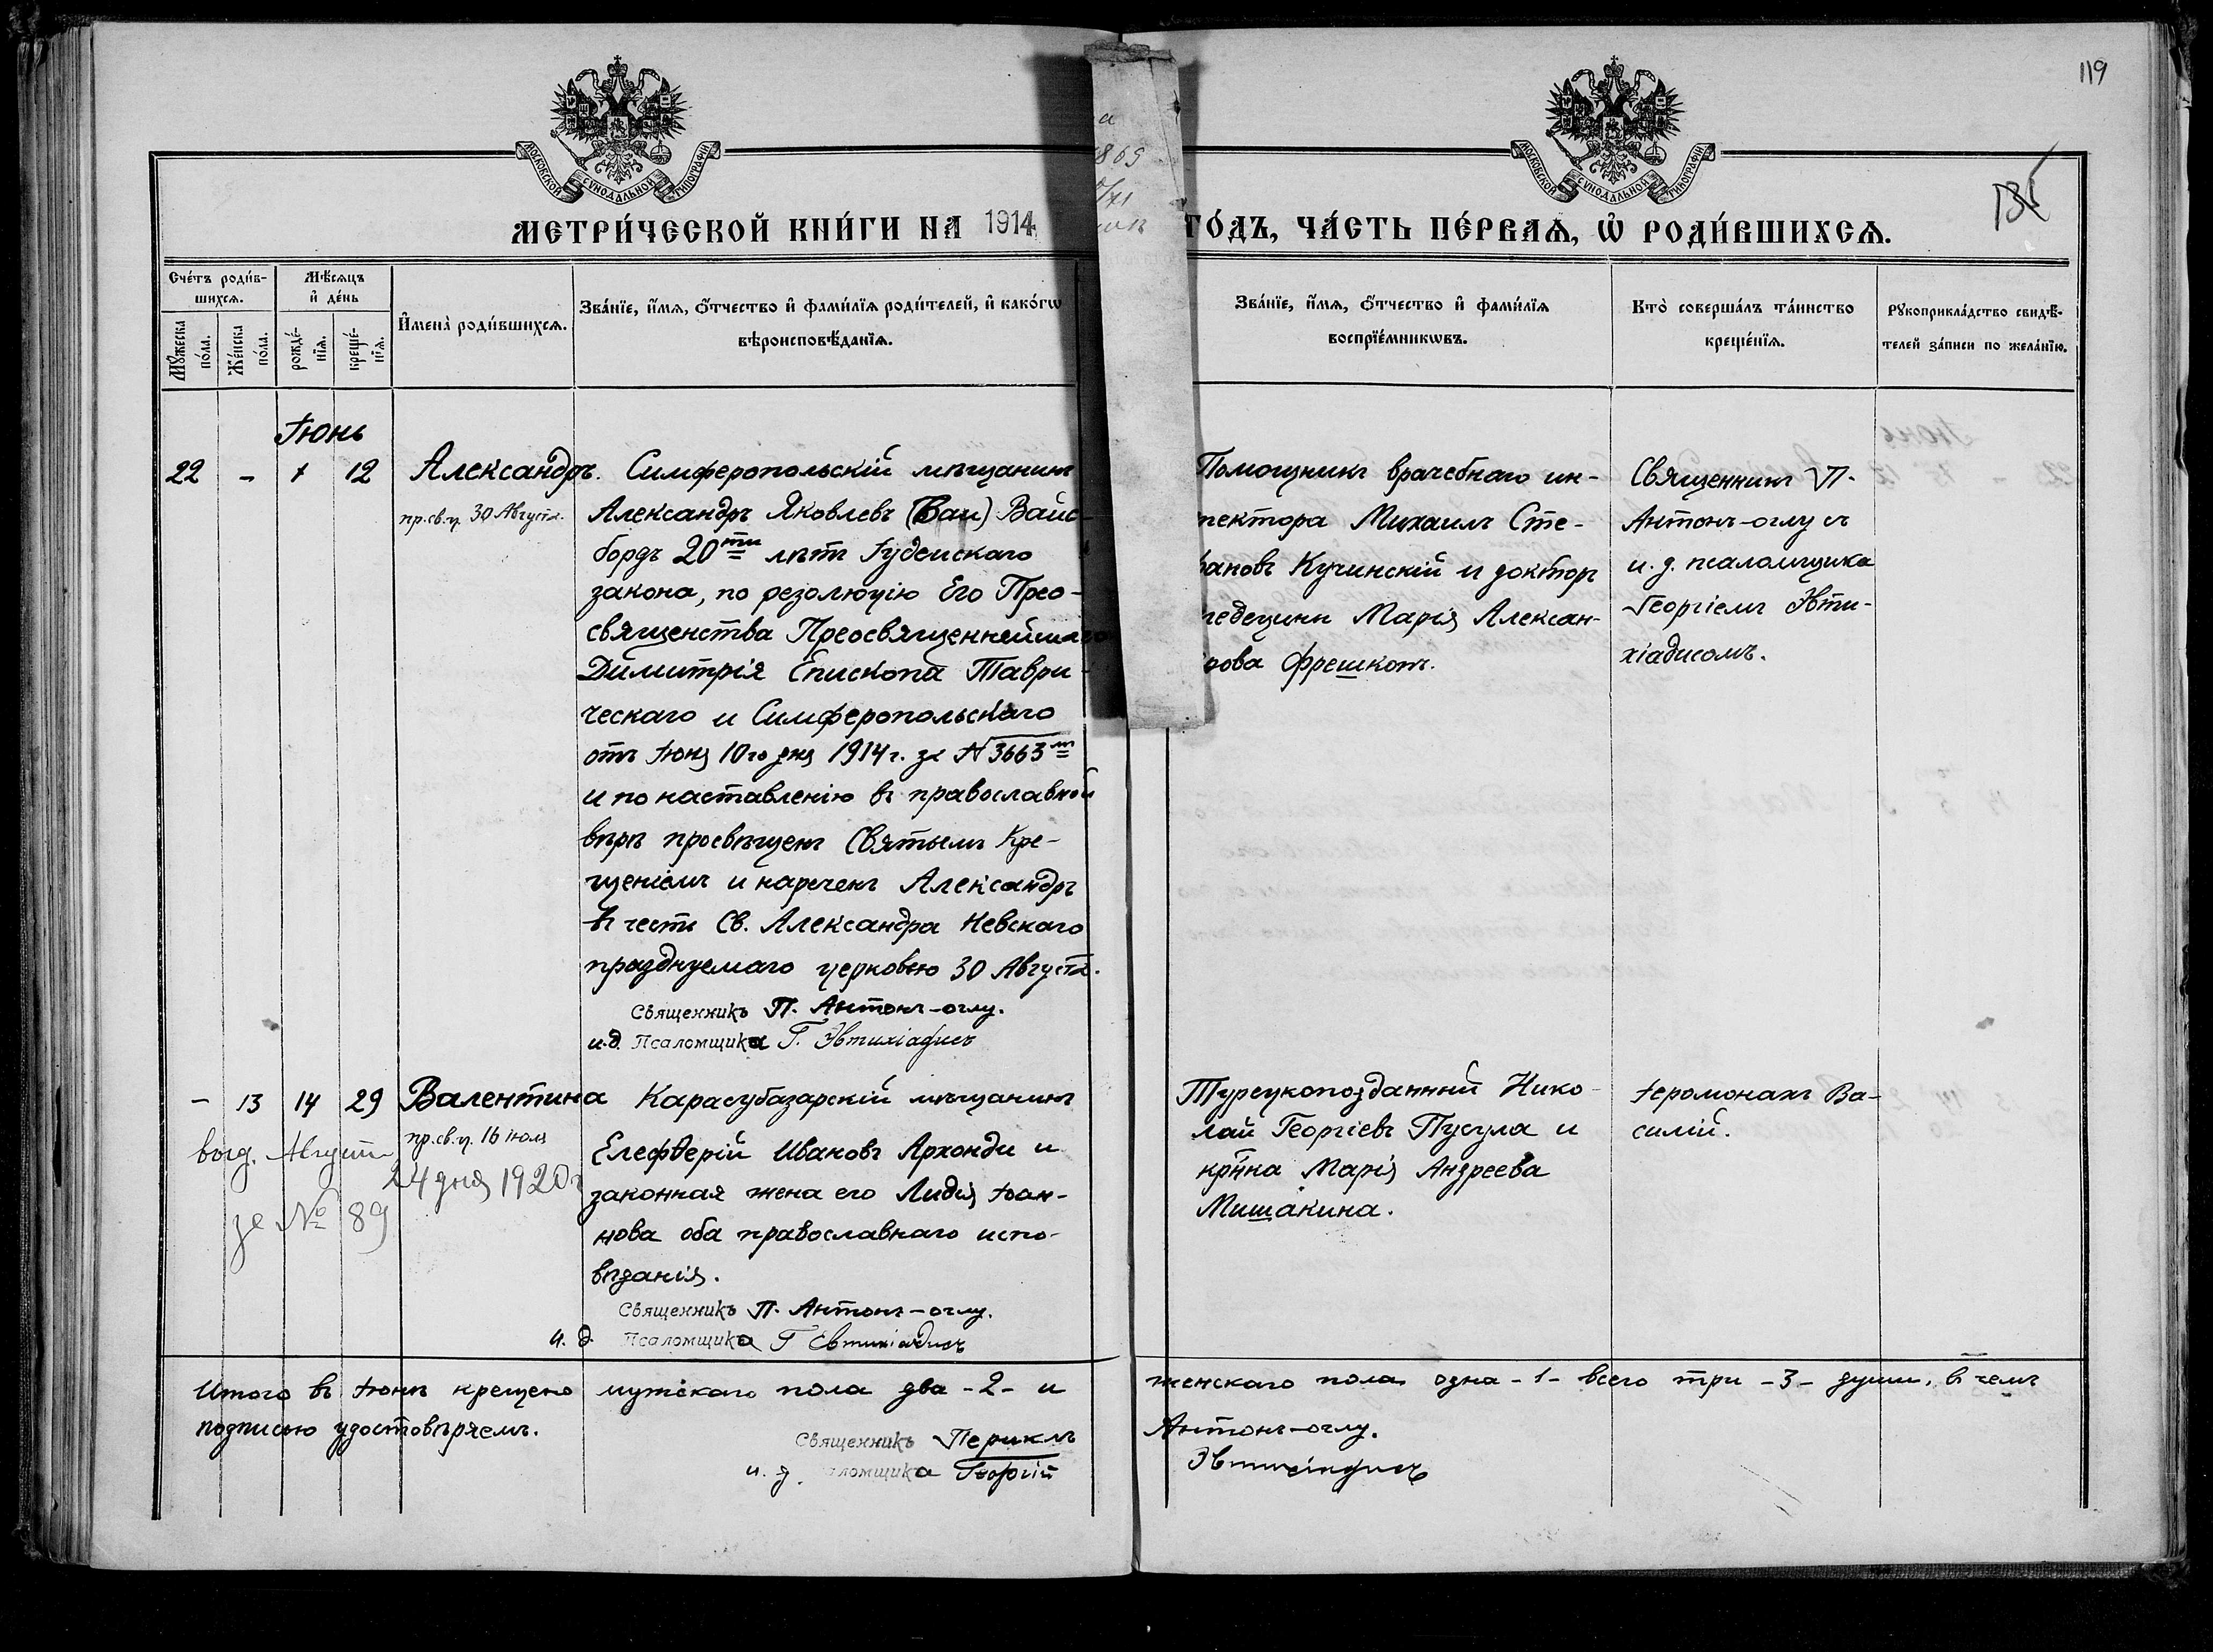 119
135
МОСКОВСКОЙ СѴНОДАЛЬНОЙ ТИПОГРАФІИ
МОСКОВСКОЙ СѴНОДАЛЬНОЙ ТИПОГРАФІИ
МЕТРИ́ЧЕСКОЙ КНИ́ГИ НА 1914 ГО́ДЪ, ЧА́СТЬ ПЕ́РВАѦ, Ѽ РОДИ́ВШИХСѦ.
Сче́тъ роди́в-
шихсѧ.
Мꙋ́жеска по́ла.
Же́нска по́ла.
Мѣ́сѧцъ
и҆ де́нь
рожде́-
нїѧ.
креще́-
нїѧ.
И҆мена̀ роди́вшихсѧ.
Зва́нїе, и҆́мѧ, ѻ҆́тчество и҆ фами́лїѧ роди́телей, и҆ како́гѡ
вѣроисповѣ́данїѧ.
Зва́нїе, и҆́мѧ, ѻ҆́тчество и҆ фами́лїѧ
воспрїе́мникѡвъ.
Кто̀ соверша́лъ та́инство
креще́нїѧ.
Рꙋкоприкла́дство свидѣ́-
телей за́писи по жела́нїю.
а
869
Іюнь
22 - 1 12
Александръ.
пр. св. ц. 30 Августа.
Симферопольскій мѣщанинъ
Александръ Яковлевъ (Ваи) Вайс-
бордъ 20ти лѣтъ Іудейскаго
закона, по резолюцію Его Прео-
священства Преосвященнейшаго
Димитрія Епископа Таври-
ческаго и Симферопольскаго
отъ Іюня 10го дня 1914 г. за № 3663м
и по наставленію въ православной
вѣрѣ просвѣщенъ Святымъ Кре-
щеніемъ и нареченъ Александръ
въ честь Св. Александра Невскаго
празднуемаго церковью 30 Августа.
Священникъ П. Антонъ-оглу.
и.д. Псаломщика Г. Эвтихіадисъ
Помощникъ врачебнаго ин-
пектора Михаилъ Сте-
фановъ Кучинскій и докторъ
медецины Марія Алексан-
рова Фрешкопъ.
Священникъ П.
Антонъ-оглу съ
и. д. псаломщика
Георгіемъ Эвти-
хіадисомъ.
- 13 14 29
Валентина
пр. св. ц. 16 Іюля
выд. Августа
24 дня 1920 г
за № 89
Карасубазарскій мѣщанинъ
Елефѳерій Ивановъ Архонди и
законная жена его Лидія Іоан-
нова оба православнаго испо-
вѣданія.
Священникъ П. Антонъ-оглу.
и. д. Псаломщика Г Евтихіадисъ
Турецкоподданный Нико-
лай Георгіевъ Пусула и
кр̃нка Марія Андреева
Мишакина.
Іеромонахъ Ва-
силій.
Итого въ Іюнѣ крещено мужскаго пола два -2- и женскаго пола одна -1- всего три -3- души, въ чемъ
подписью удостовѣряемъ.
Священникъ Периклъ Антонъ-оглу.
и. д. Псаломщика Георгій Эвтихіадисъ